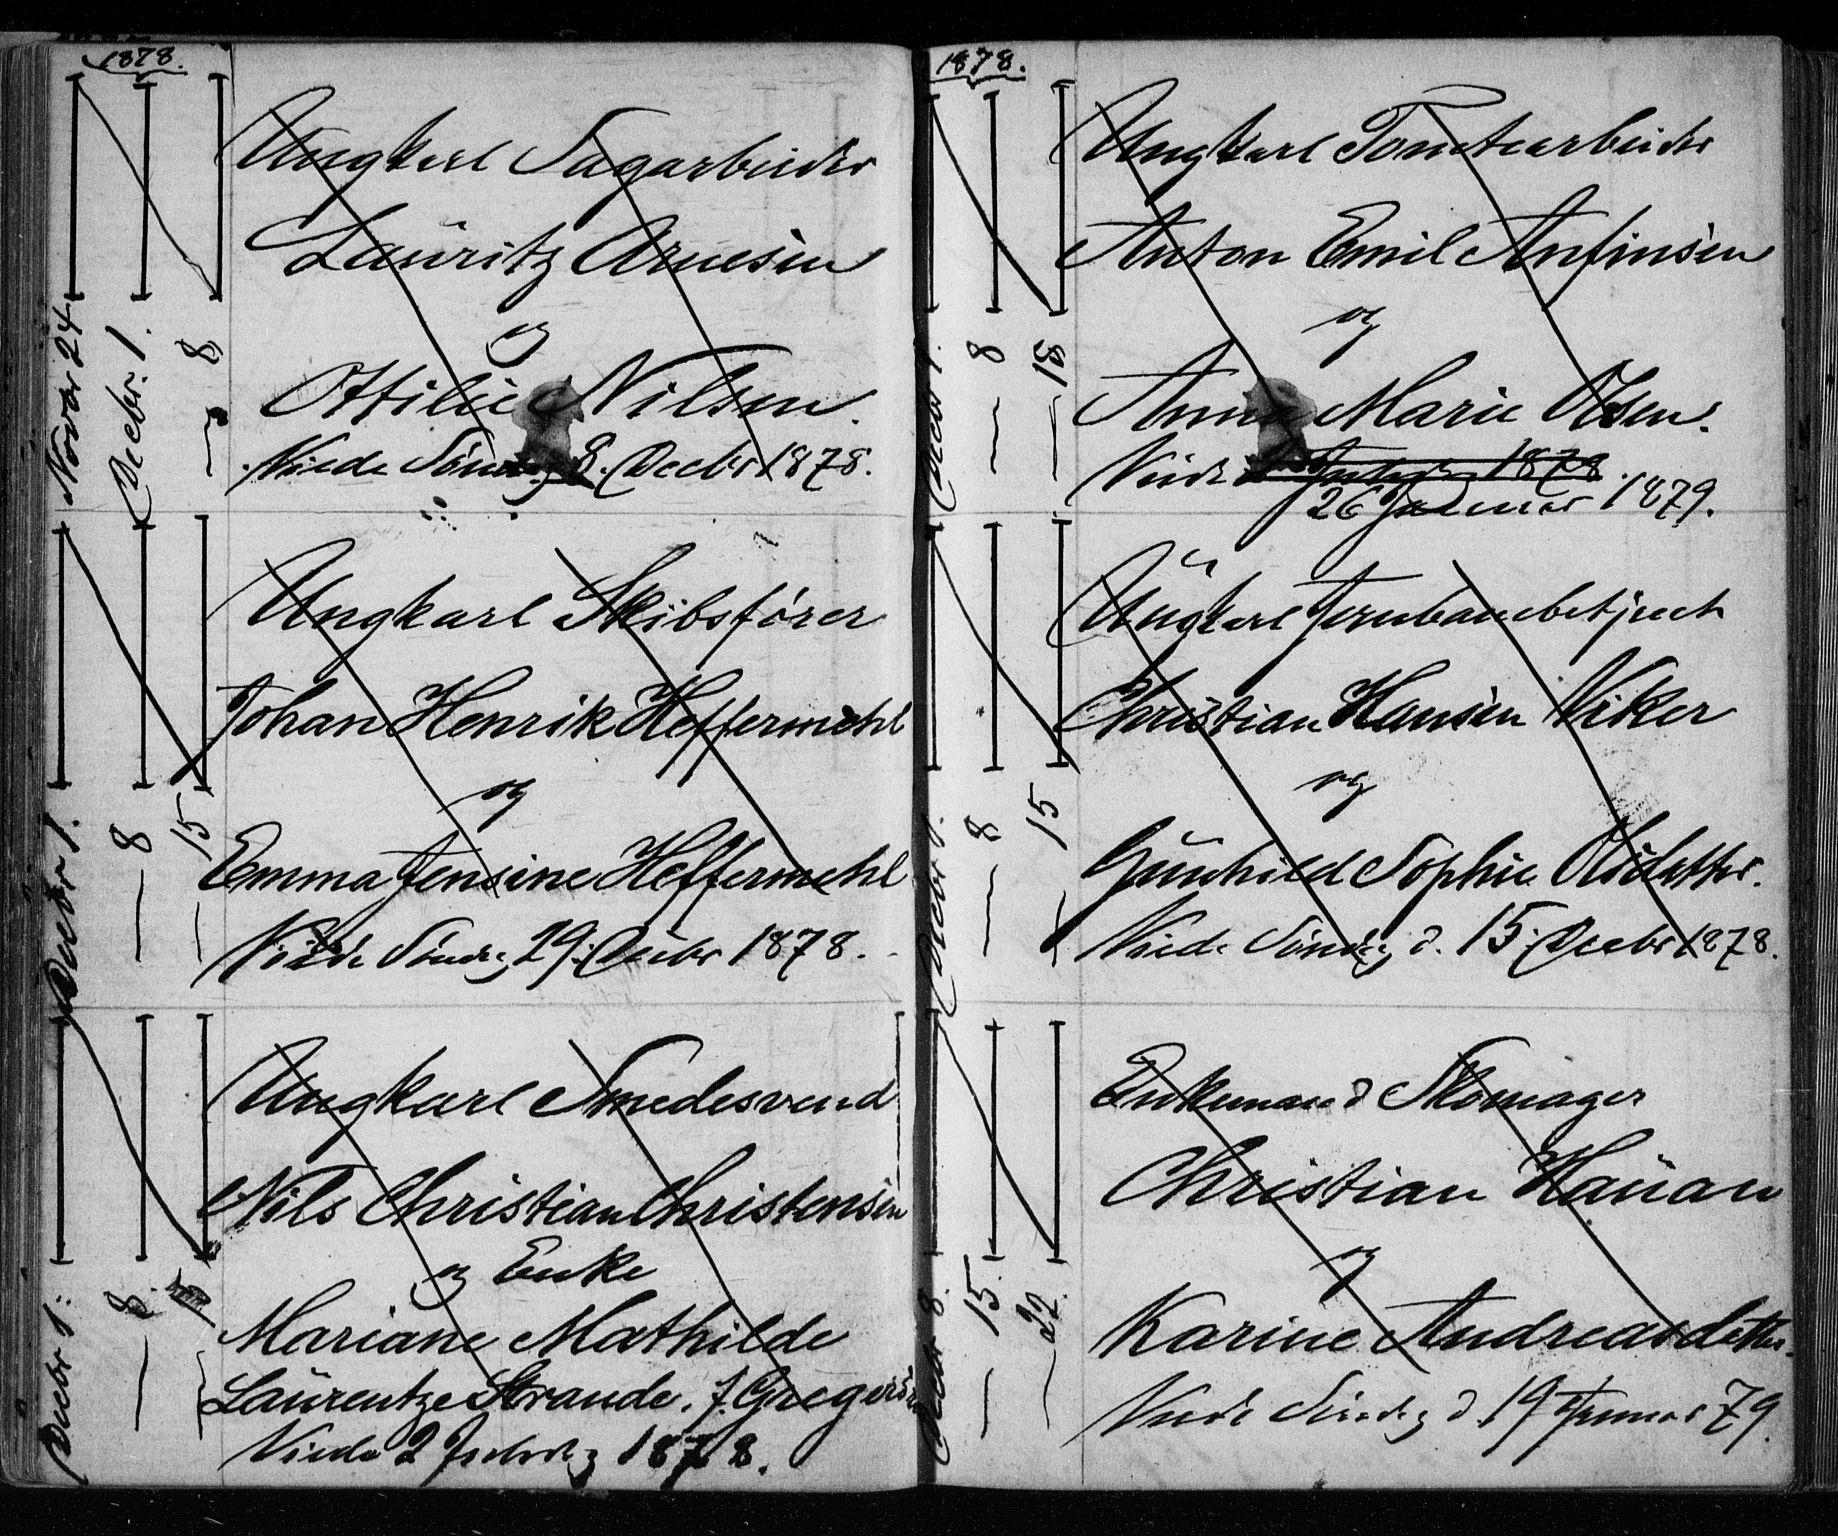 1878.
Novbr 24
Decbr. 1.
— 8
Ungkarl Sagarbeider
Lauritz Arnesen
og
Ottilie Nilsen.
Viede Søndag 8. Decbr 1878.
Decbr 1.
— 8
— 15
Ungkarl Skibsfører
Johan Henrik Heffermehl
og
Emma Jensine Heffermehl
Viede Søndag 29. Decbr 1878.
Decbr 1.
— 8.
— 15
Ungkarl Smedesvend
Nils Christian Christensen
og Enke
Mariane Mathilde
Laurentze Strande. f. Gregersen
Viede 2 Juledag 1878.
1878.
Decbr 1.
— 8
— 15
Ungkarl Tomtearbeider
Anton Emil Anfinsen
og
Anna Marie Olsen.
Viede Juledag 1878.
26 Januar 1879.
Decbr 1.
— 8
— 15
Ungkarl Jernbanebetjent
Christian Hansen Viker
og
Gunhild Sophie Olsdatter.
Viede Søndag d. 15. Decbr 1878.
Decbr 8.
— 15.
— 22.
Enkemand Skomager
Christian Hauan
og
Karine Andreasdatter.
Viede Søndag d. 19 Januar 79.